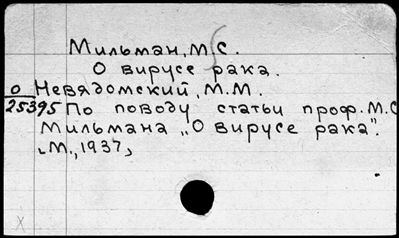 Мильман, М.С.
О вирусе рака.
о Невядомский, М.М.
25395 По поводу статьи проф. М.С
Мильмана „О вирусе рака".
М., 1937,